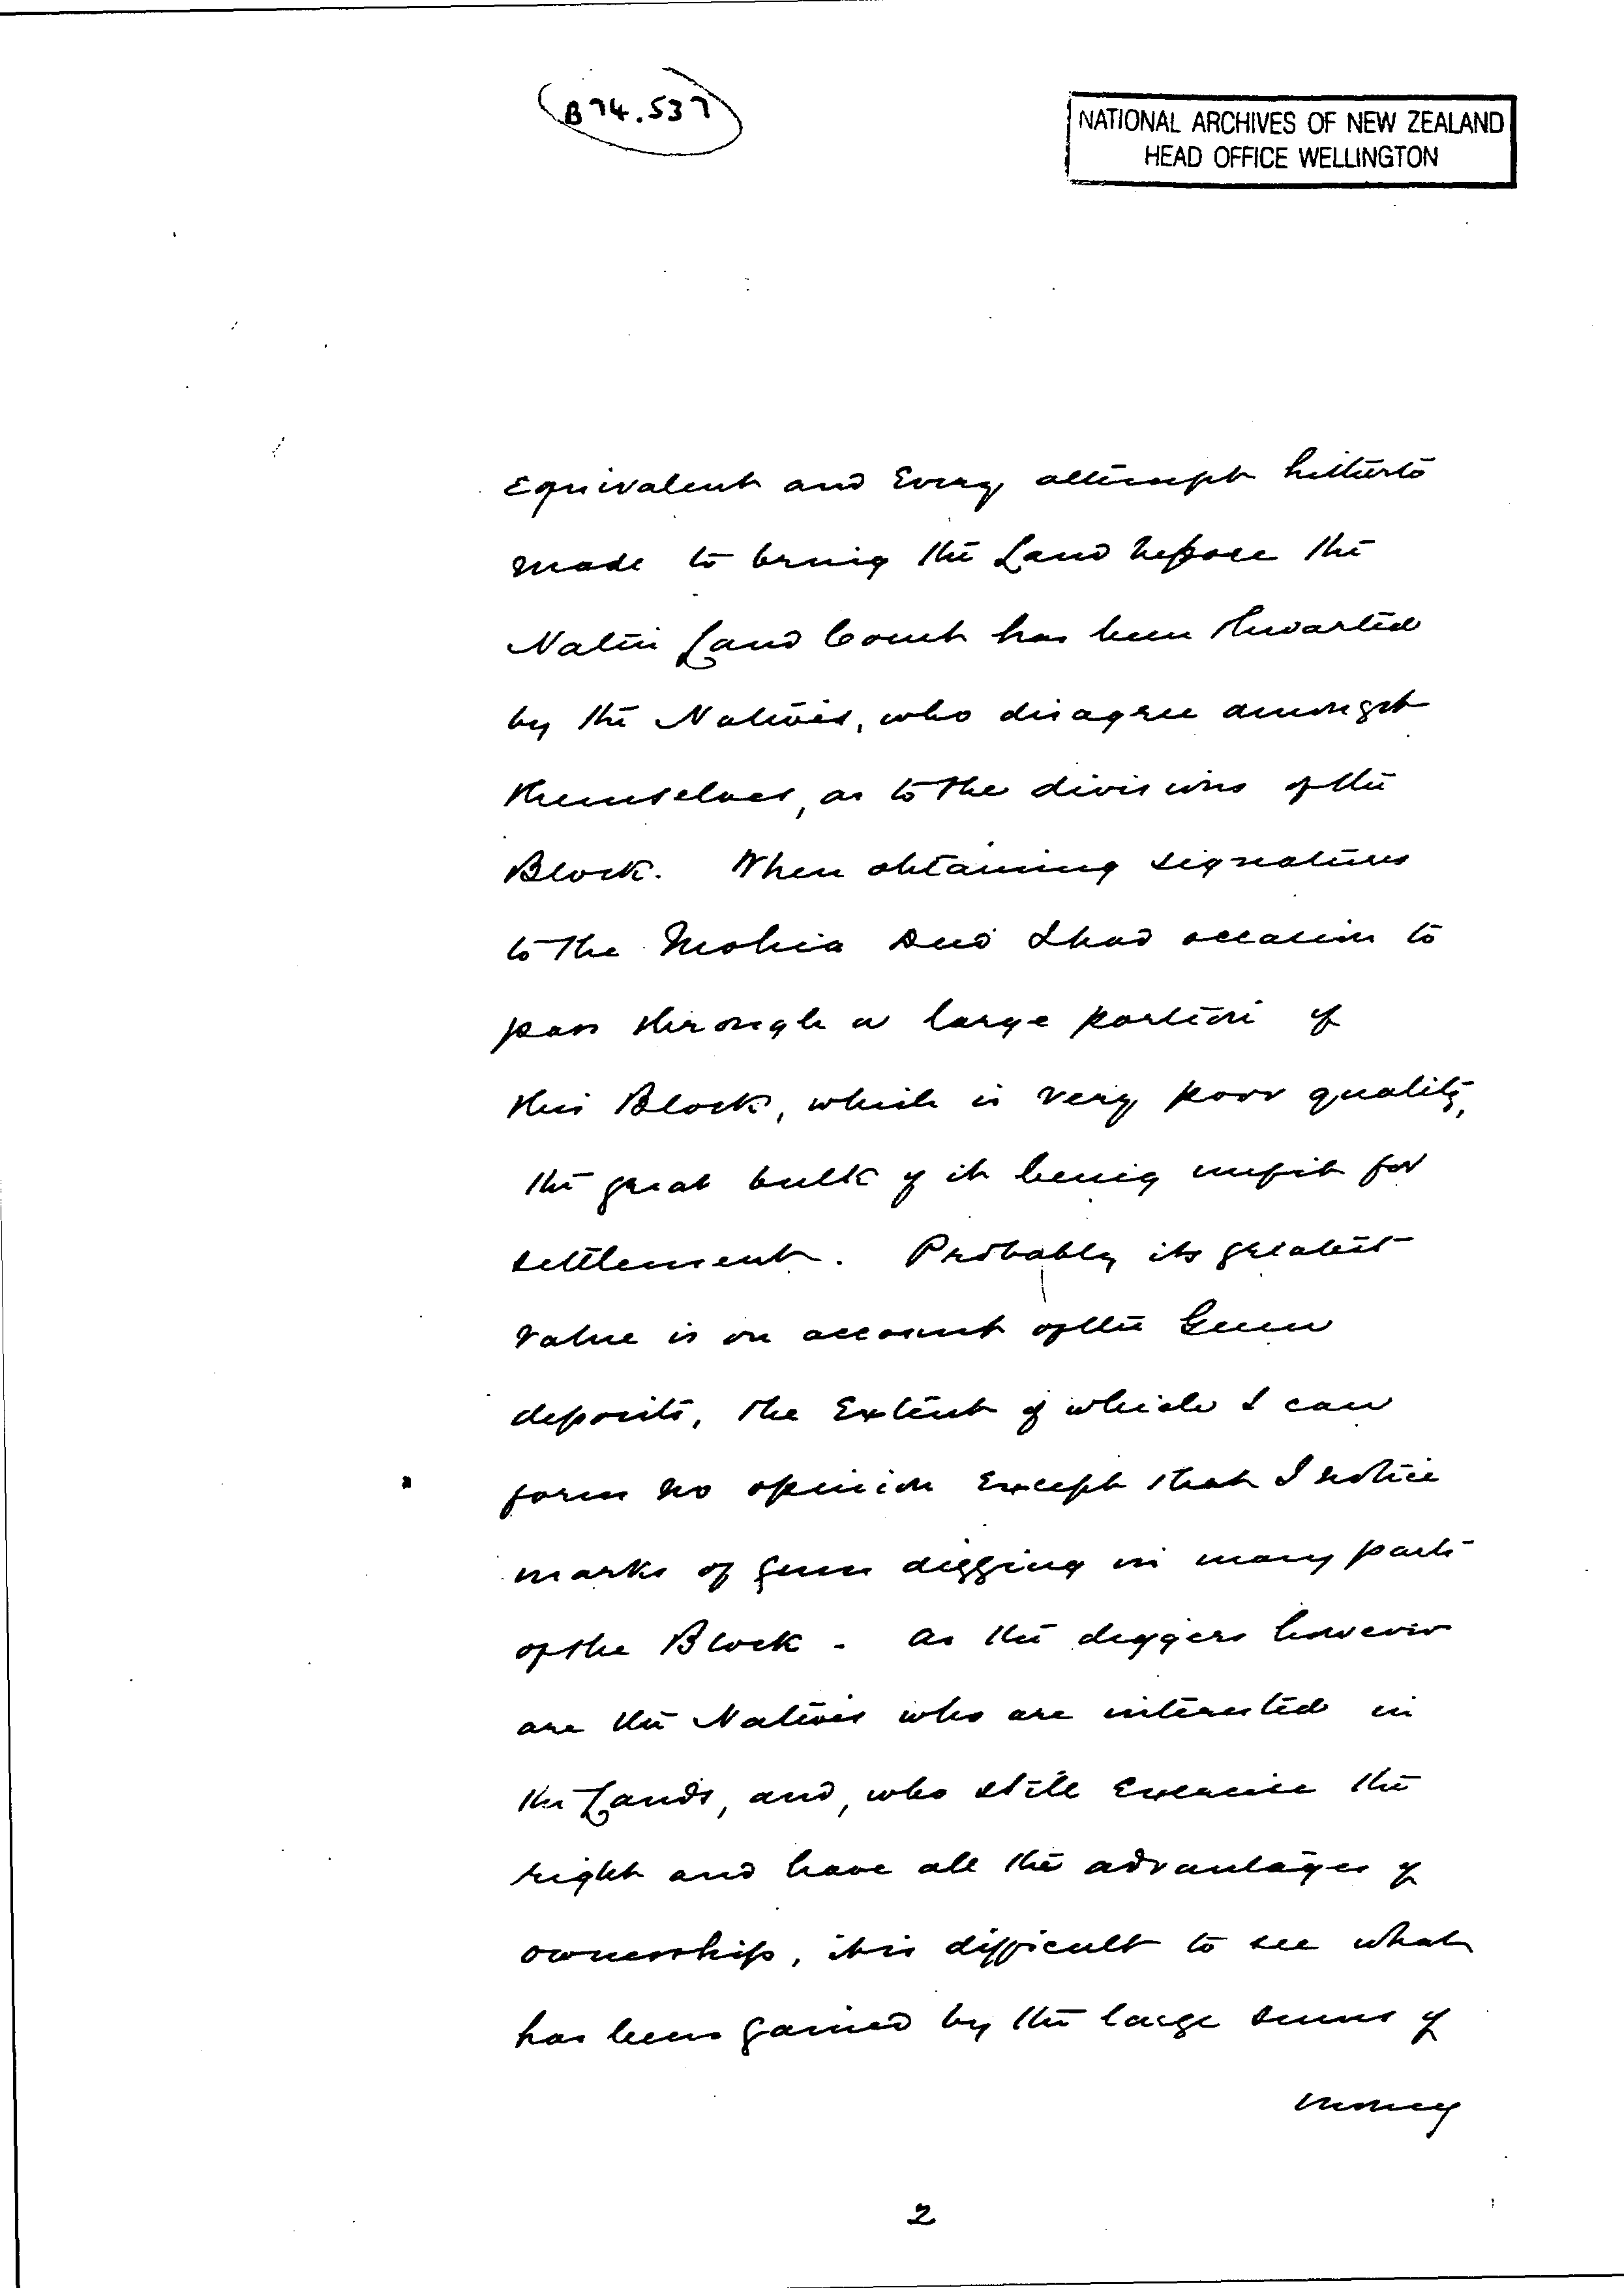 B74.537
NATIONAL ARCHIVES OF NEW ZEALAND
HEAD OFFICE WELLINGTON
equivalent and Every attempt hitherto
made to bring the Land before the
Native Land Court has been thwarted
by the Natives, who disagree amongst
themselves, as to the divisions of the
Block. When obtaining signatures
to the Deed I had occasion to
pass through a large portion of
this Block, which is very poor quality,
the great bulk of it being unfit for
settlement. Probably its greatest
value is on account of the Gum
deposits, the Extent of which I can
form no opinion Except that I notice
marks of gum digging in many parts
of the Block - as the diggers however
are the Natives who are interested in
the Lands, and, who still Exercise the
right and have all the advantages of
ownership, it is difficult to see what
has been gained by the large sums of
money
2